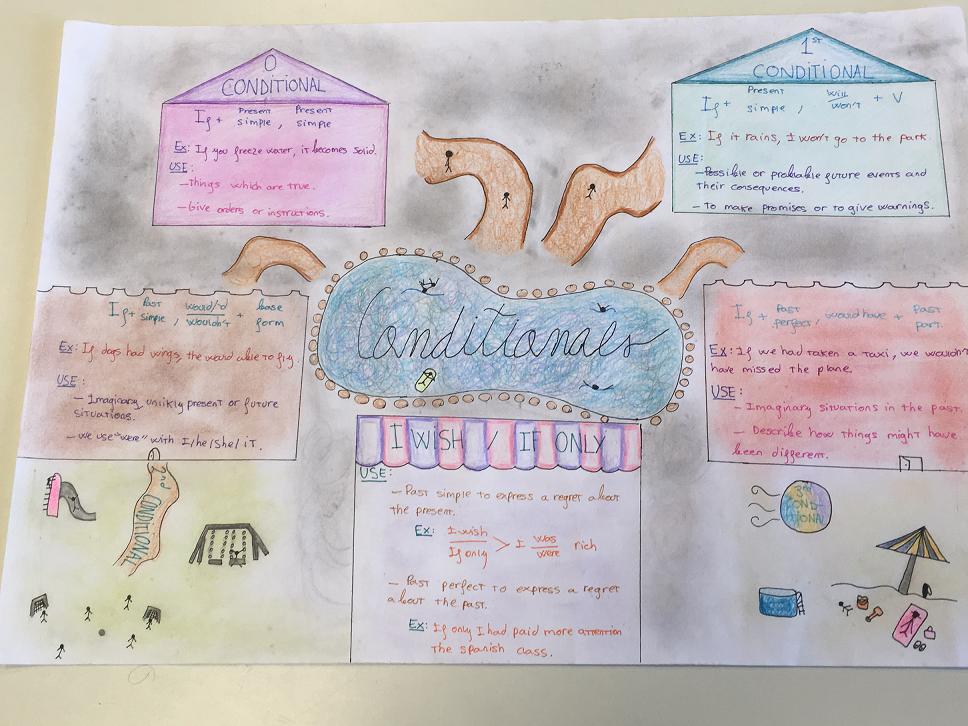 0
CONDITIONAL
If + Present simple, Present simple
Ex: If you freeze water, it becomes solid.
USE:
– Things which are true.
– Give orders or instructions.
1ST
CONDITIONAL
If + Present simple, will/won't + V
Ex: If it rains, I won't go to the park.
USE:
– Possible or probable future events and
their consequences.
– To make promises or to give warnings.
Conditionals
If + Past simple, would/'d/wouldn't + base form
Ex: If dogs had wings, the would able to fly.
USE:
– Imaginary, unlikly present or future
situations.
– we use "were" with I/he/she/it.
2nd CONDITIONAL
If + Past perfect, would have + Past part.
Ex: If we had taken a taxi, we wouldn't
have missed the plane.
USE:
– Imaginary situations in the past.
– Describe how things might have
been different.
3rd
COND-
ITIONAL
I WISH / IF ONLY
USE:
– Past simple to express a regret about
the present.
Ex: I wish/If only > I was/were rich
– Past perfect to express a regret
about the past.
Ex: If only I had paid more attention
the spanish class.